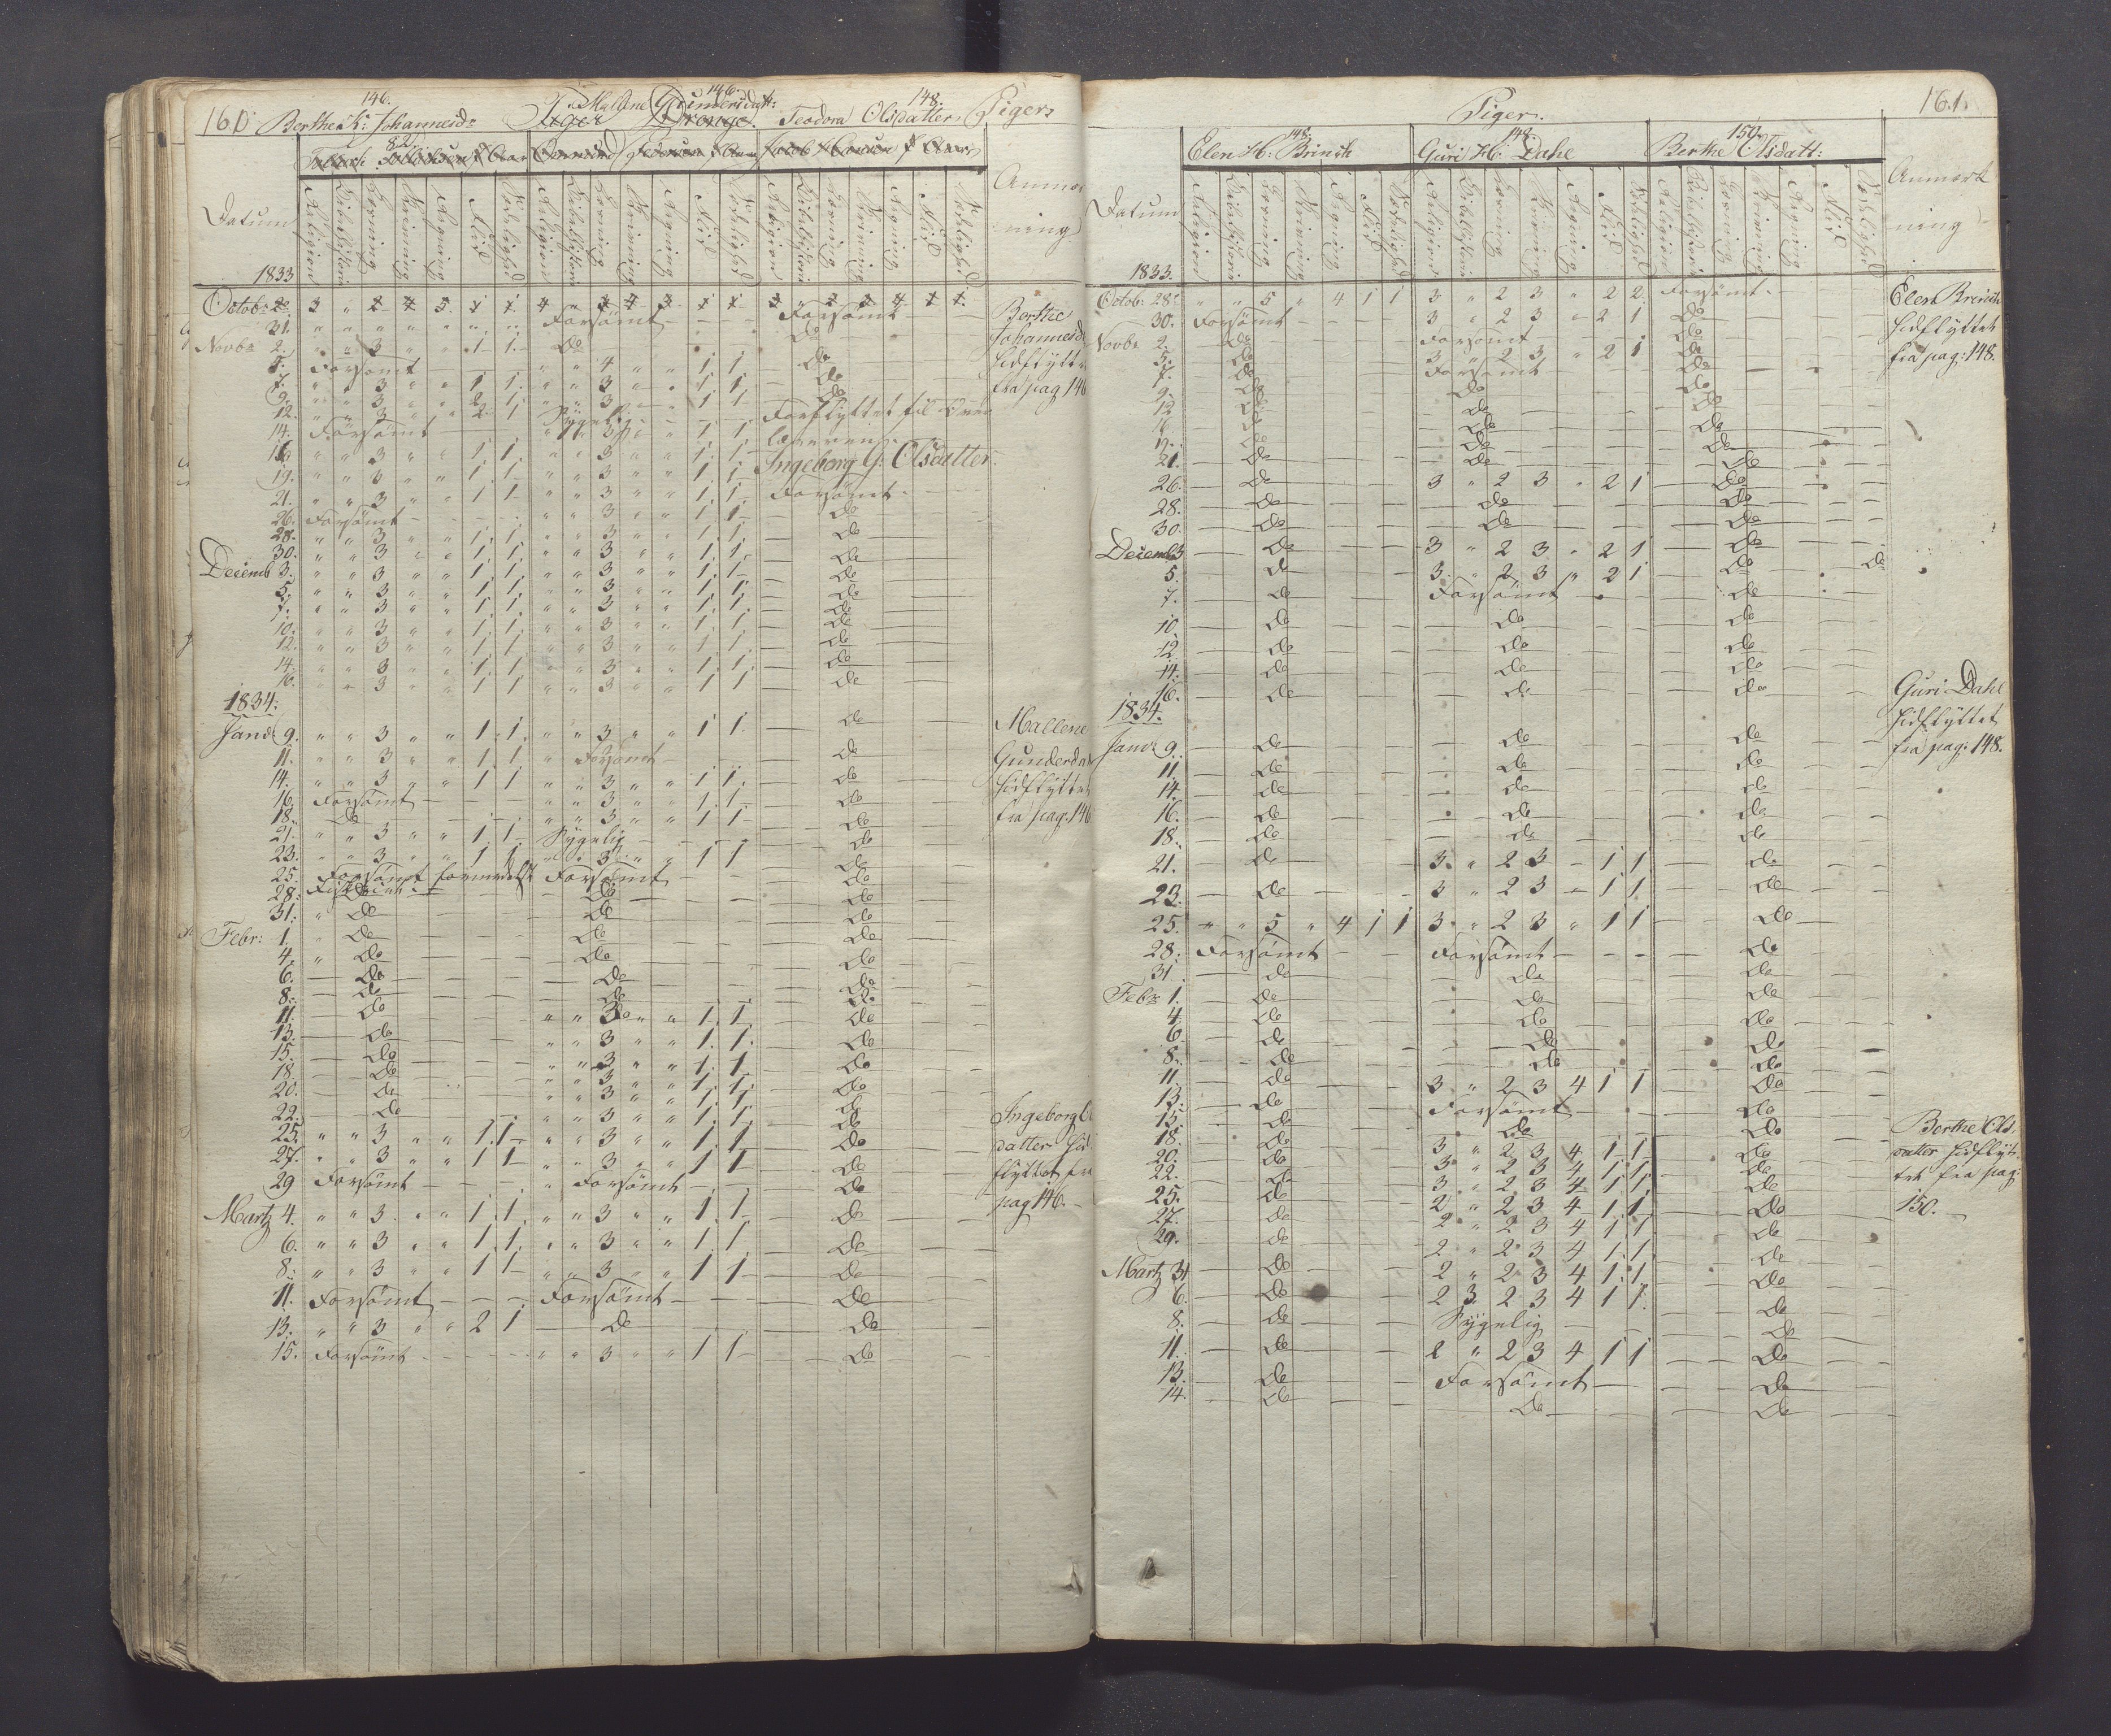 160
146.
Berthe K: Johannesd:
146.
Mallene Gundersdatt:
148.
Teodora Olsdatter
Piger
Piger Drenge
Datum
Religion
Bibelhistorie
Læsning
Skrivning
Regning
Flid
Sædelighed
Religion
Bibelhistorie
Læsning
Skrivning
Regning
Flid
Sædelighed
Religion
Bibelhistorie
Læsning
Skrivning
Regning
Flid
Sædelighed
Anmærkning
1833
Octobr
31. " " " " " " " Forsömt — — Forsömt — —
Novbr 2. " " 3 " " 1 1 — do — do
5. Forsömt — — " " 4 " " 1 1 — do
7. " " 3 " " 1 1 " " 3 " " 1 1 — do
9. " " 3 " " 2 1 " " 3 " " 1 1 — do
12. " " 3 " " 2 1 Sygelig — — Forflyttet til
14. Forsömt — — " " 3 " " 1 1
16. " " 3 " " 1 1 " " 3 " " 1 1 Ingeborg G: Olsdatter
19. " " 3 " " 1 1 " " 3 " " 1 1
21. " " 3 " " 1 1 " " 3 " " 1 1 Forsömt —
26. Forsömt — — " " 3 " " 1 1 — do
28. " " 3 " " 1 1 " " 3 " " 1 1 — do
30. " " 3 " " 1 1 " " 3 " " 1 1 — do
Decemb 3. " " 3 " " 1 1 " " 3 " " 1 1 — do
5. " " 3 " " 1 1 " " 3 " " 1 1 — do
7. " " 3 " " 1 1 " " 3 " " 1 1 — do
10. " " 3 " " 1 1 " " 3 " " 1 1 — do
12. " " 3 " " 1 1 " " 3 " " 1 1 — do
14. " " 3 " " 1 1 " " 3 " " 1 1 — do
16. " " 3 " " 1 1 " " 3 " " 1 1 — do
1834.
Janr 9. " " 3 " " 1 1 " " 3 " " 1 1 — do
11. " " 3 " " 1 1 " Forsömt — — do
14. " " 3 " " 1 1 " " 3 " " 1 1 — do
16. Forsömt — — " " 3 " " 1 1 — do
18. do — — " " 3 " " 1 1 — do
21. " " 3 " " 1 1 Sygelig — — do
23. " " 3 " " 1 1 " " 3 " " 1 1 — do
25. Forsömt formedelst Forsömt — — do
28. Fiskeriet — do — do
31. " do — do — do
Febr: 1. " do — do — do
4. " do — do — do
6. — do — do — do
8. — do — do — do
11. — do — " " 3 " " 1 1 — do
13. — do — " " 3 " " 1 1 — do
15. — do — " " 3 " " 1 1 — do
18. — do — " " 3 " " 1 1 — do
20. — do — " " 3 " " 1 1 — do
22. — do — " " 3 " " 1 1 — do
25. " " 3 " " 1 1 " " 3 " " 1 1 — do
27. " " 3 " " 1 1 " " 3 " " 1 1 — do
29 Forsömt — — " Forsömt — — do
Martz 4. " " 3 " " 1 1 " " 3 " " 1 1 — do
6. " " 3 " " 1 1 " " 3 " " 1 1 — do
8. " " 3 " " 1 1 " " 3 " " 1 1 — do
11. Forsömt — — Forsömt — — do
13. " " 3 " " 2 1 — do — do
15. Forsömt — — " " 3 " " 1 1 — do
Berthe
Johannesd
hidflytt
fra pag 146
Mallene
Gundersdat
hidflyttet
fra pag: 146
Ingeborg
datter hid
flyttet fra
pag 146. —
161.
Piger.
148.
Elen H: Brinch
148.
Guri H: Dahl
150.
Berthe Olsdatt:
Datum
Religion
Bibelhistorie
Læsning
Skrivning
Regning
Flid
Sædelighed
Religion
Bibelhistorie
Læsning
Skrivning
Regning
Flid
Sædelighed
Religion
Bibelhistorie
Læsning
Skrivning
Regning
Flid
Sædelighed
Anmærkning
1833.
Octob: 28 " " 5 " 4 1 1 3 " 2 3 " 2 2 Forsömt —
30. Forsömt — — 3 " 2 3 " 2 1 do
Novbr 2. — do — Forsömt — — do
5. — do — 3 " 2 3 " 2 1 do
7. — do — Forsömt — — do
9. — do — do — do
12 — do — do — do
16. — do — do — do
19. — do — do — do
21. — do — do — do
26. — do — 3 " 2 3 " 2 1 — do
28. — do — do — do
30. — do — do — do
Decemb 3 — do — 3 " 2 3 " 2 1 — do
5. — do — 3 " 2 3 " 2 1 — do — do
7. — do — Forsömt — — do
10. — do — do — do
12 — do — do — do
14. — do — do — do
16. — do — do — do
1834.
Janr 9. — do — do — do
11. — do — do — do
14. — do — do — do
16. — do — do — do
18. — do — do — do
21. — do — 3 " 2 3 — 1 1 — do
23. — do — 3 " 2 3 — 1 1 — do
25. " " 5 " 4 1 1 3 " 2 3 " 1 1 — do
28. Forsömt — — Forsömt — — do
31 — do — do — do
Febr 1. — do — do — do
4. — do — do — do
6. — do — do — do
8. — do — do — do
11. — do — 3 " 2 3 4 1 1 — do
13. — do — Forsömt — — do
15. — do — do — do
18. — do — 3 " 2 3 4 1 1 — do
20. — do — 3 " 2 3 4 1 1 — do
22. — do — 3 " 2 3 4 1 1 — do
25. — do — 2 " 2 3 4 1 1 — do
27. — do — 2 " 2 3 4 1 1 — do
29. — do — 2 " 2 3 4 1 1 — do
Martz — do — 2 " 2 3 4 1 1 — do
6. — do — 2 3 2 3 4 1 1 — do
8. — do — Sygelig — — do
11. — do — 2 " 2 3 4 1 1 — do
13. — do — Forsömt — — do
14. — do — do — do
Elen Brinch
hidflyttet
fra pag: 148.
Guri Dahl
hidflyttet
fra pag: 148.
Berthe Ols
datter hidflyt
tet fra pag:
150. —